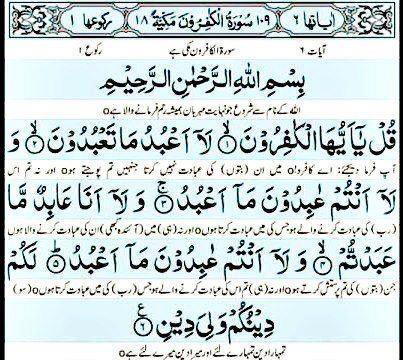 اٰیاتها ٦ ١٠٩ سُوْرَةُ الْكٰفِرُوْنَ مَكِّيَّةٌ ١٨ رکوعها ١
آیات ٦ سورۃ الکافرون مکی ہے رکوع ١
بِسْمِ اللّٰهِ الرَّحْمٰنِ الرَّحِيْمِ
اللہ کے نام سے شروع جو نہایت مہربان ہمیشہ رحم فرمانے والا ہے o
قُلْ يٰۤاَيُّهَا الْكٰفِرُوْنَ ۙ﴿١﴾ لَاۤ اَعْبُدُ مَا تَعْبُدُوْنَ ۙ﴿٢﴾ وَ
آپ فرما دیجئے: اے کافرو! o میں ان (بتوں) کی عبادت نہیں کرتا جنہیں تم پوجتے ہو o اور نہ تم اس
لَاۤ اَنْتُمْ عٰبِدُوْنَ مَاۤ اَعْبُدُ ۚ﴿٣﴾ وَ لَاۤ اَنَا عَابِدٌ مَّا
(رب) کی عبادت کرنے والے ہو جس کی میں عبادت کرتا ہوں o اور نہ (ہی) میں (آئندہ کبھی) ان کی عبادت کرنے والا ہوں
عَبَدْتُّمْ ۙ﴿٤﴾ وَ لَاۤ اَنْتُمْ عٰبِدُوْنَ مَاۤ اَعْبُدُ ؕ﴿٥﴾ لَكُمْ
جن (بتوں) کی تم پرستش کرتے ہو o اور نہ (ہی) تم اس کی عبادت کرنے والے ہو جس (رب) کی میں عبادت کرتا ہوں o (سو)
دِيْنُكُمْ وَ لِيَ دِيْنِ ﴿٦﴾ ع
تمہارا دین تمہارے لئے اور میرا دین میرے لئے ہے o